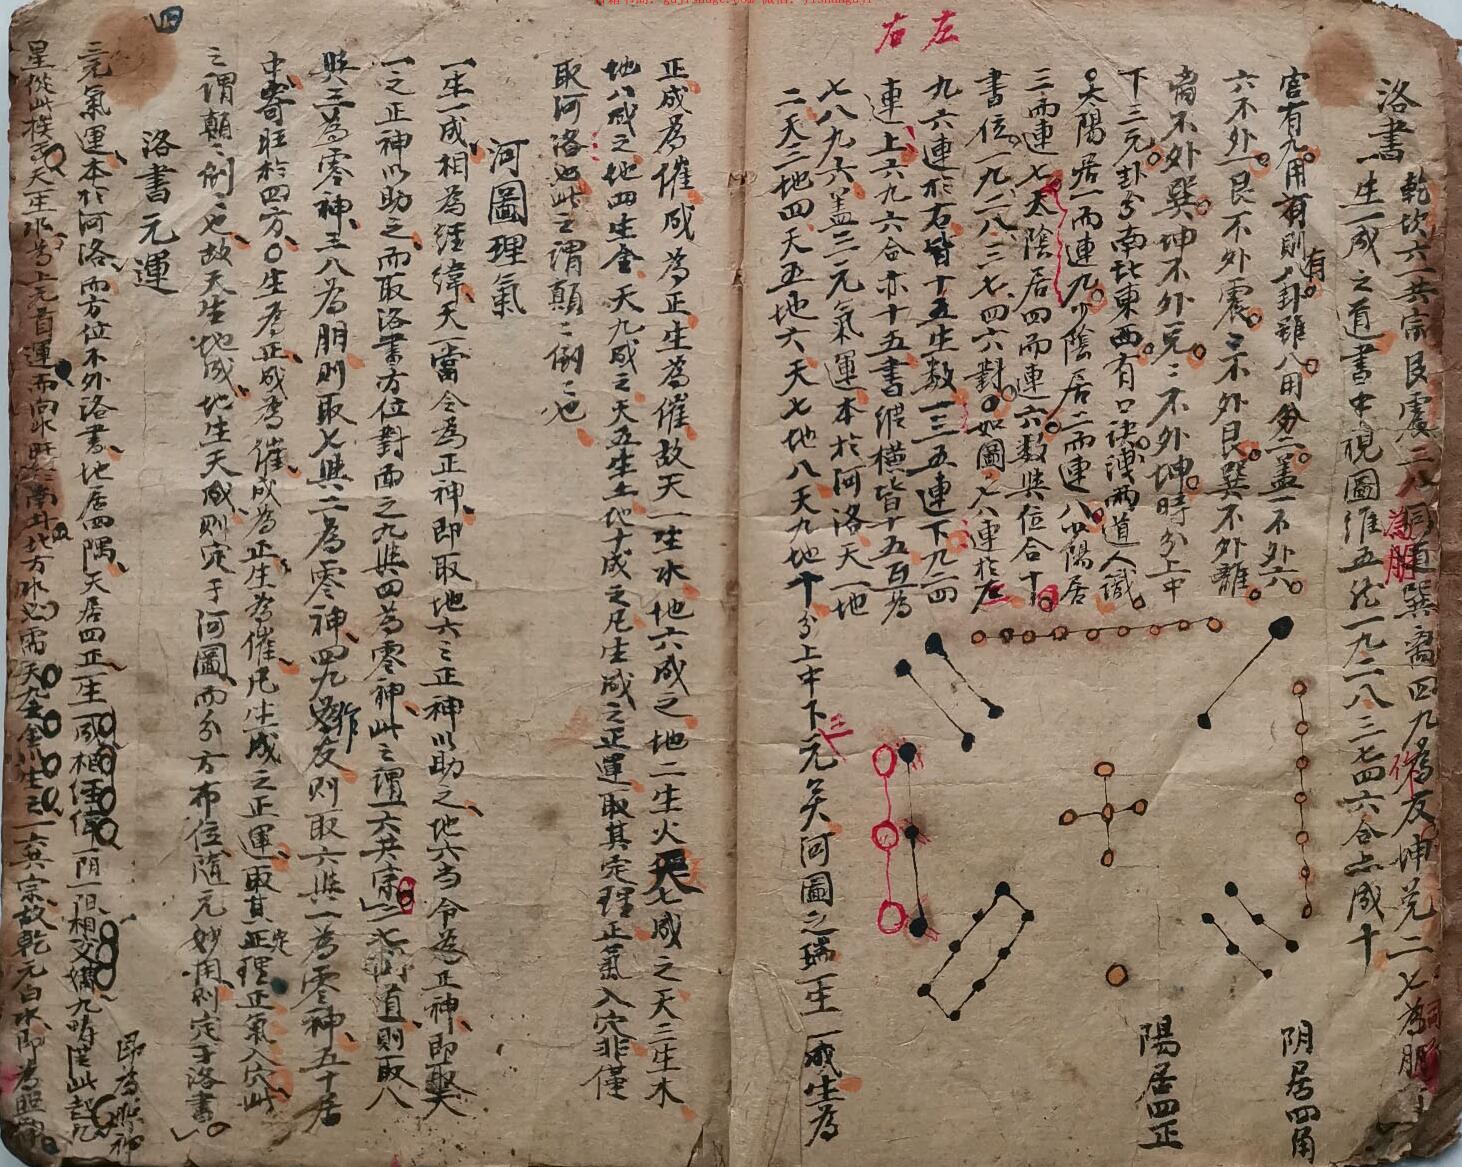 右 左
洛書
乾坎六一共宗艮震三八為朋巽离四九為友坤兑二七
一生一成之道書中視圖維五於一九二八三七四六合点成十
宫有九用有則八卦雖八用分二蓋一不外六
六不外一艮不外震震不外艮巽不外離
离不外巽坤不外兑兑不外坤時分上中
下三元卦分南北東西有口诀洩兩道人識
太陽居一而連九少陰居二而連八少陽居
三而連七太陰居四而連六数與位合十
書位一九二八三七四六對如圖七八連於左
九六連於右皆十五生数一三五連下九二四
連上六九六合亦十五書縱横皆十五互為
七八九六盖三元氣運本於河洛天一地
二天三地四天五地六天七地八天九地十分上中下元矣河圖之瑞一生一成生為
阴居四角
陽居四正
三
正成為催成為正生為催故天一生水地六成之地二生火天七成之天三生木
地八成之地四生金天九成之天五生土地十成之凡生成之正運取其定理正氣入穴非僅
取河洛也此之謂顛顛倒倒也
河圖理氣
一生一成相為經緯天一當令為正神即取地六之正神以助之地六当令為正神即取天
一之正神以助之而取洛書方位對面之九與四為零神此之謂一六共宗二七同道則取八
與三為零神三八為朋則取七與二為零神四九為友則取六與一為零神五十居
中寄旺於四方生為正成為催成為正生為催凡生成之正運取其正理正氣入穴此
之謂顛顛倒倒也故天生地成地生天成則定于河圖而分方布位隨元妙用則定于洛書
洛書元運
元氣運本於河洛而方位不外洛書地居四隅天居四正一生一成相經緯一阴一阳相交媾九疇從此起九
星從此挨天一生水為上元首運而北方水必需天九金以生之一六共宗故乾元白水即為照神
即為照神